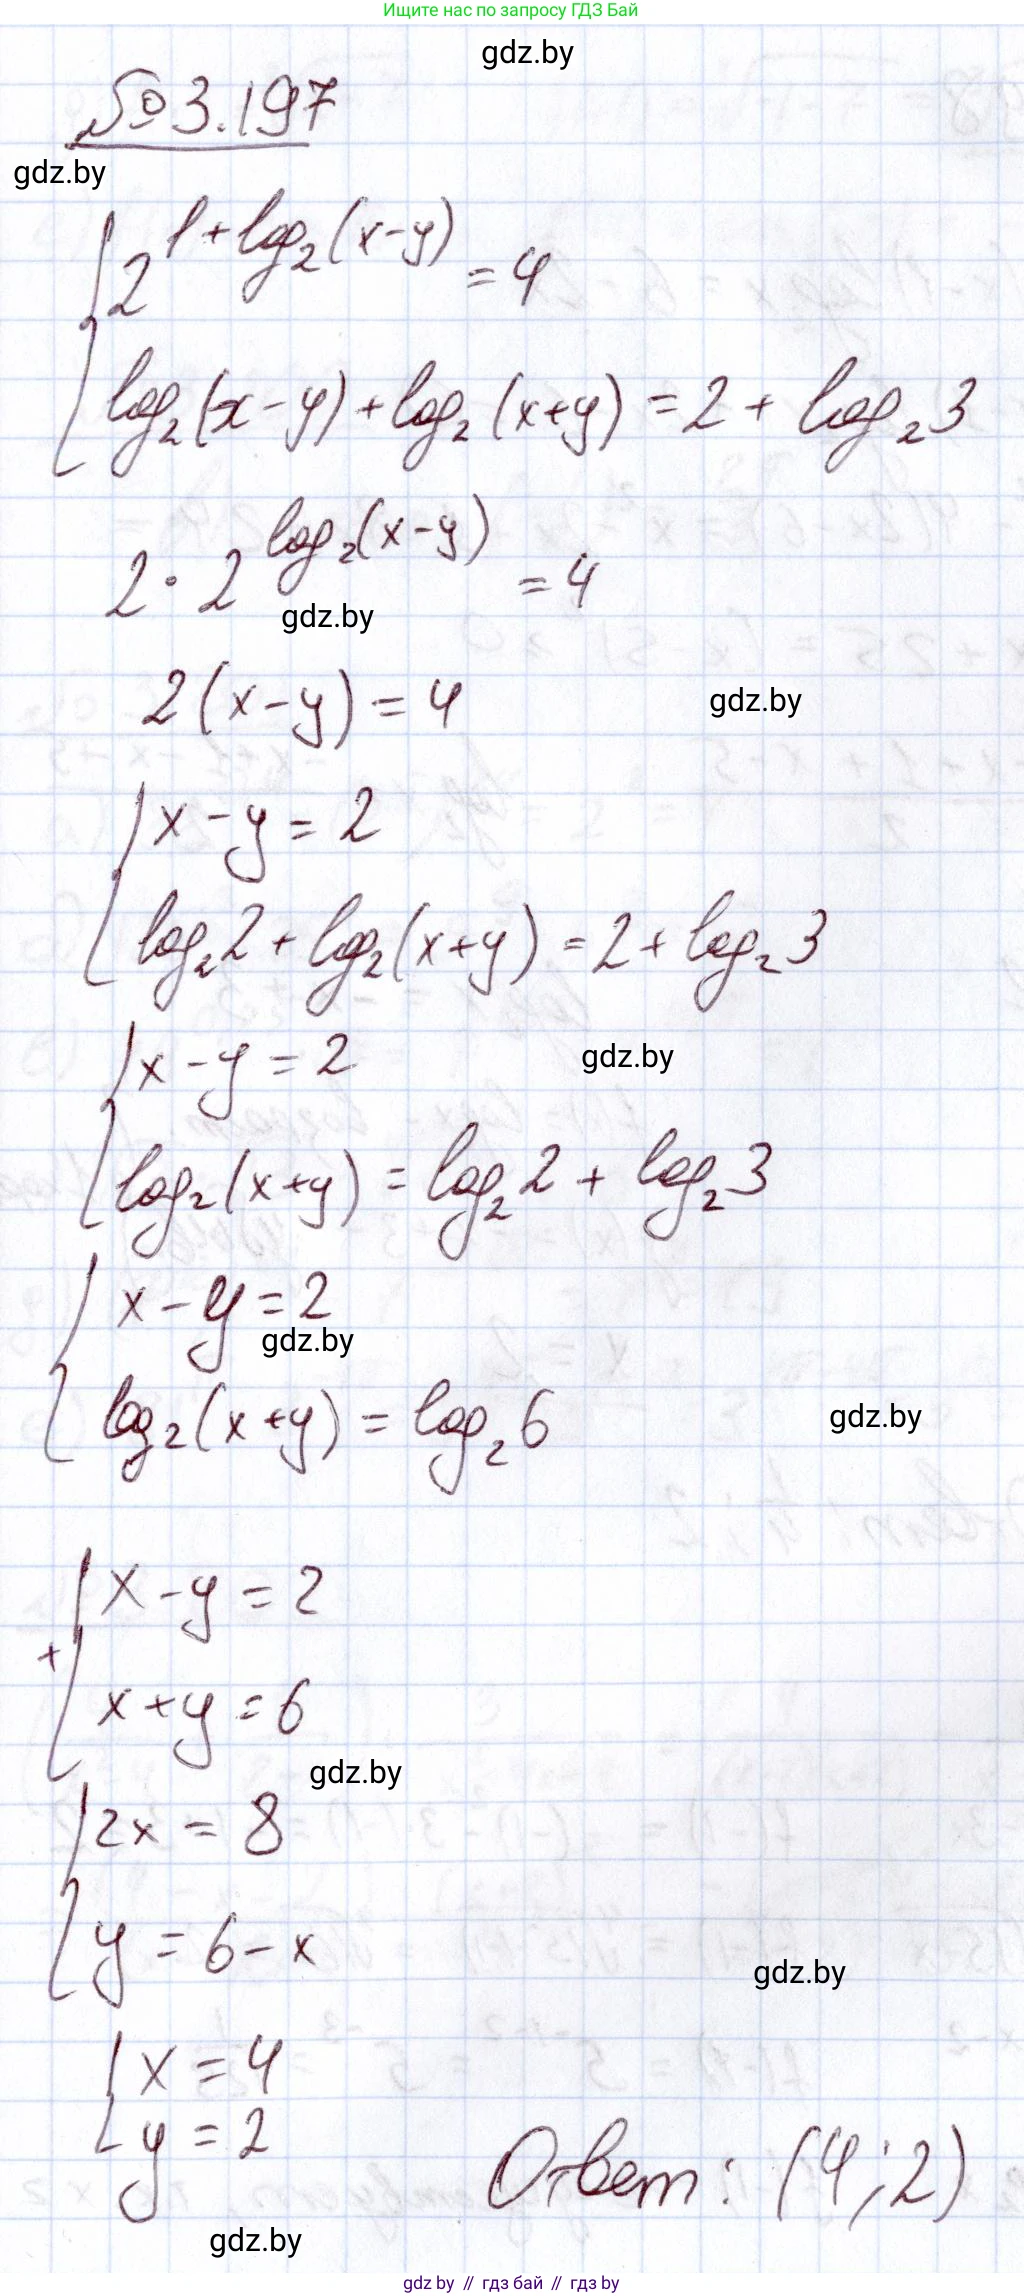 Ищите нас по запросу ГДЗ Бай
gdz.by
№3.197
gdz.by
{ 2^{1+log₂(x-y)} = 4
log₂(x-y) + log₂(x+y) = 2 + log₂3
2 · 2^{log₂(x-y)} = 4
gdz.by
2(x-y) = 4
gdz.by
{ x-y = 2
log₂2 + log₂(x+y) = 2 + log₂3
{ x-y = 2
gdz.by
log₂(x+y) = log₂2 + log₂3
{ x-y = 2
gdz.by
log₂(x+y) = log₂6
gdz.by
+ { x-y = 2
x+y = 6
gdz.by
{ 2x = 8
y = 6-x
gdz.by
{ x = 4
y = 2
Ответ: (4; 2)
gdz.by
gdz.by // гдз бай // gdz.by